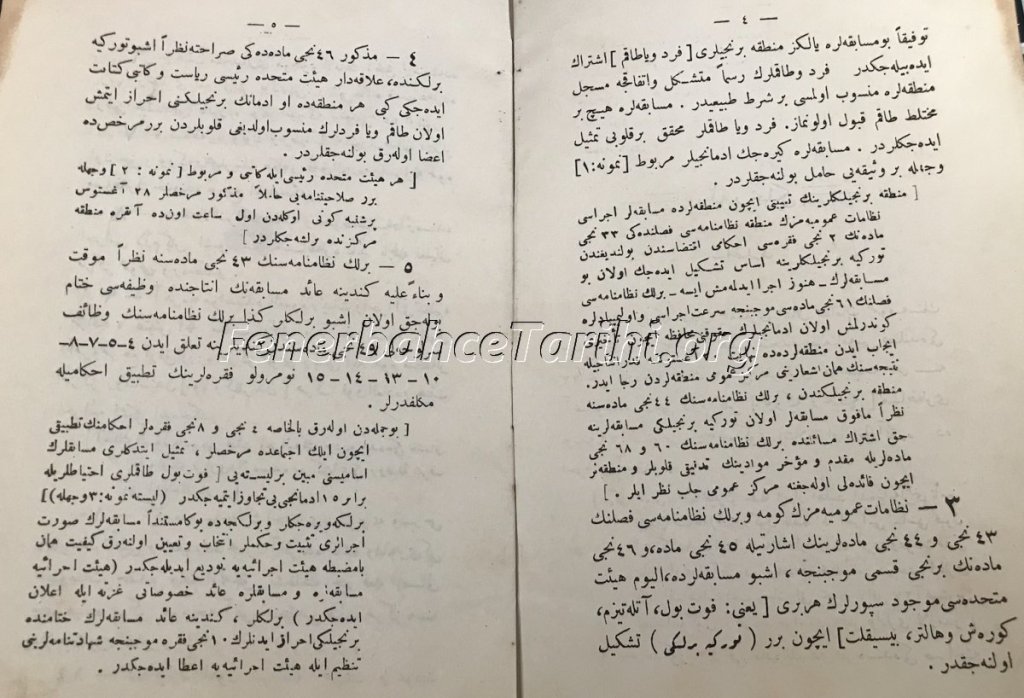 — ٤ —
توفیقاً بو مسابقه‌لره یالكز منطقه برنجیلری [ فرد ویا طاقم ] اشتراك
ایده‌بیله‌جكدر فرد وطاقملرك رسماً متشكل واتفاقجه مسجل
منطقه‌لره منسوب اولمسی بر شرط طبیعیدر . مسابقه‌لره هیچ بر
مختلط طاقم قبول اولونماز. فرد ویا طاقملر محقق برقلوبی تمثیل
ایده‌جكلردر . مسابقه‌لره كیره‌جك ادمانجیلر مربوط [ نمونه:۱ ]
وجهله بر وثیقه‌یی حامل بولنه‌جقلردر .
[ منطقه برنجیلكلرینك تبیینی ایچون منطقه‌لرده مسابقه‌لر اجراسی
نظامات عمومیه‌مزك منطقه نظامنامه‌سی فصلنده‌كی ۳۳ نجی
ماده‌نك ۲ نجی فقره‌سی احكامی اقتضاسندن بولندیغندن
توركیه برنجیلكلرینه اساس تشكیل ایده‌جك اولان بو
مسابقه‌لرك ـ هنوز اجرا ایدله‌مش ایسه ـ برلك نظامنامه‌سی
فصلنك ٦١ نجی ماده‌سی موجبنجه سرعت اجراسی
كوندرلمش اولان ادمانجیلرك حقوقی محافظه
ایجاب ایدن منطقه‌لرده‌ده
نتیجه‌سنك همان اشعارینی مركز عمومی منطقه‌لردن رجا ایدر.
منطقه برنجیلكندن ، برلك نظامنامه‌سنك ٤٤ نجی ماده‌سنه
نظراً مافوق مسابقه‌لر اولان توركیه برنجیلكی مسابقه‌لرینه
حق اشتراك مسائلنده برلك نظامنامه‌سنك ٦٠ و ٦٨ نجی
ماده‌لریله مقدم و مؤخر موادینك تدقیق قلوبلر و منطقه‌لر
ایچون فائده‌لی اوله‌جغنه مركز عمومی جلب نظر ایلر . ]
۳ — نظامات عمومیه‌مزك كومه وبرلك نظامنامه‌سی فصلنك
٤٣ نجی و ٤٤ نجی ماده‌لرینك اشارتیله ٤٥ نجی ماده، و ٤٦ نجی
ماده‌نك برنجی قسمی موجبنجه ، اشبو مسابقه‌لرده، الیوم هیئت
متحده‌سی موجود سپورلرك هربری [ یعنی: فوت بول، آتله‌تیزم،
كوره‌ش وهالتر، بیسیقلت ] ایچون برر ( توركیه برلكی ) تشكیل
اولنه‌جقدر .
— ٥ —
٤ — مذكور ٤٦ نجی ماده‌ده‌كی صراحته نظراً اشبو توركیه
برلكنده، علاقه‌دار هیئت متحده رئیسی ریاست و كاتبی كتابت
ایده‌جكی كبی هر منطقه‌ده او ادمانك برنجیلكنی احراز ایتمش
اولان طاقم ویا فردلرك منسوب اولدیغی قلوبلردن برر مرخص‌ده
اعضا اوله‌رق بولنه‌جقلردر .
[ هر هیئت متحده رئیسی ایله كاتبی و مربوط [ نمونه : ۲ ] وجهله
برر صلاحیتنامه‌یی حاملاً مذكور مرخصلر ۲۸ آغستوس
پرشنبه كونی اوكله‌دن اول ساعت اون‌ده آنقره منطقه
مركزنده برلشه‌جكلردر ]
٥ — برلك نظامنامه‌سنك ٤٣ نجی ماده‌سنه نظراً موقت
و بناءً علیه كندینه عائد مسابقه‌نك انتاجنده وظیفه‌سی ختام
بوله‌جق اولان اشبو برلكلر كذا برلك نظامنامه‌سنك وظائف
٤٩ نجی تعلق ایدن ٤-٥-٧-٨-
١٠ -١٣ -١٤ -١٥ نومرولو فقره‌لرینك تطبیق احكامیله
مكلفدرلر .
[ بوجمله‌دن اوله‌رق بالخاصه ٤ نجی و ٨ نجی فقره‌لر احكامنك تطبیقی
ایچون ایلك اجتماعده مرخصلر ، تمثیل ایتدكلری مسابقلرك
اسامیسنی مبین برلیسته‌یی [ فوت بول طاقملری احتیاطلریله
برابر ١٥ ادمانجی‌یی تجاوز ایتمیه‌جكدر (لیسته نمونه:۳ وجهله)]
برلكه ویره‌جكلر وبرلكجه‌ده بوكا مستنداً مسابقه‌لرك صورت
اجرالری تثبیت وحكملر انتخاب وتعیین اولنه‌رق كیفیت همان
بامضبطه هیئت اجرائیه‌یه تودیع ایدیله‌جكدر ( هیئت اجرائیه
مسابقه‌نه و مسابقلره عائد خصوصاتی غزته ایله اعلان
ایده‌جكدر ) برلكلر ، كندینه عائد مسابقه‌لرك ختامنده
برنجیلكی احراز ایدنلرك ١٠ نجی فقره موجبنجه شهادتنامه‌لرینی
تنظیم ایله هیئت اجرائیه‌یه اعطا ایده‌جكدر .
FenerbahceTarihi.org